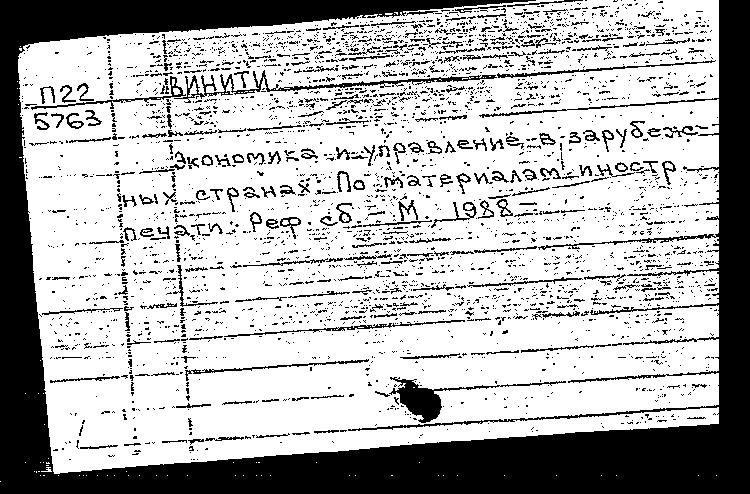 П22
5763
ВИНИТИ.
Экономика и управление в зарубеж-
ных странах: По материалам иностр.
печати: Реф. сб. - М., 1988 -